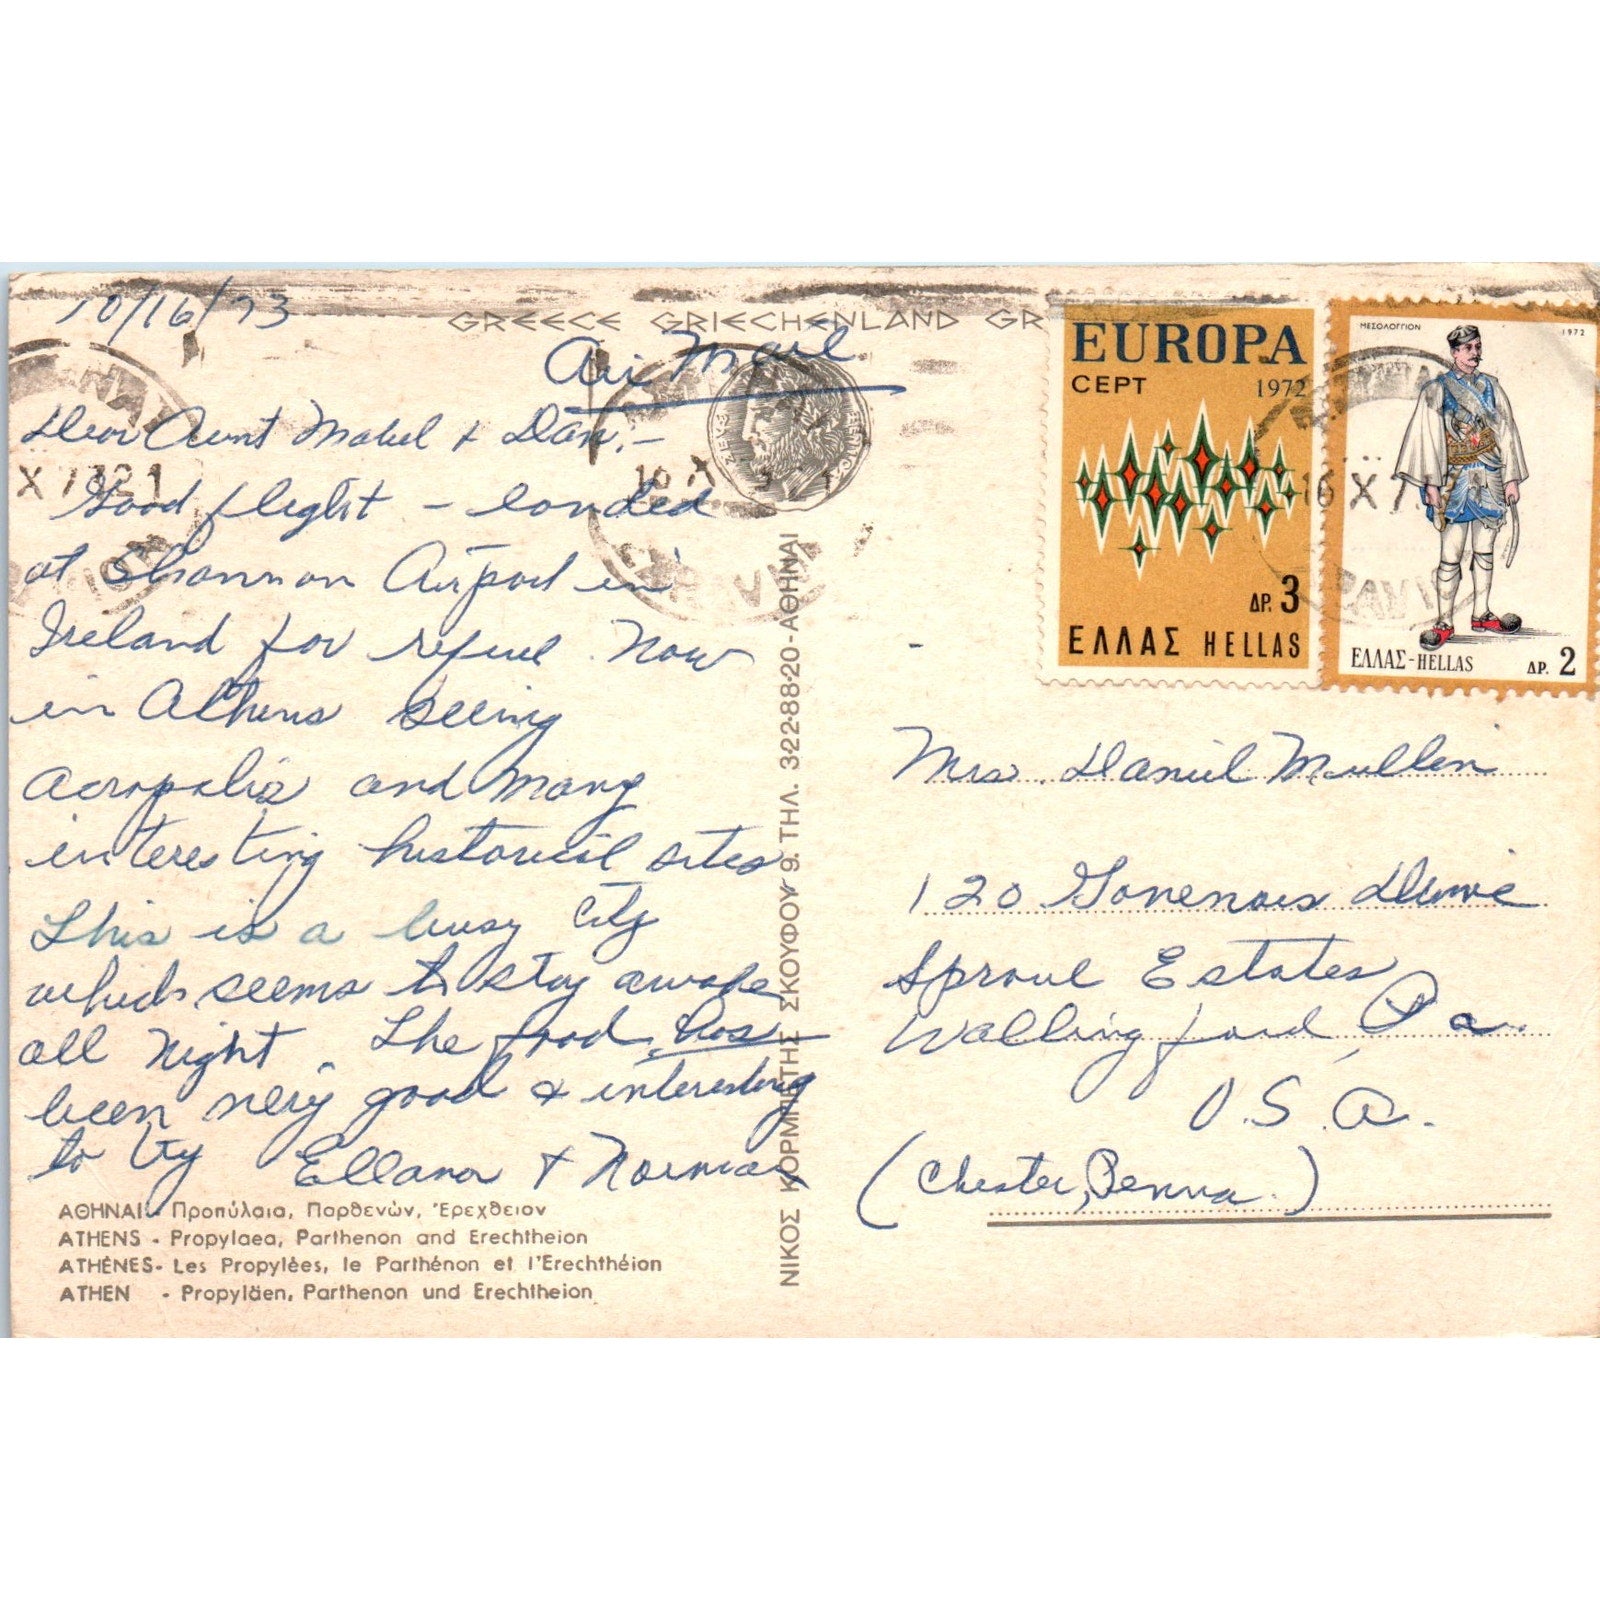 10/16/73
GREECE GRIECHENLAND GR
Air Mail
Dear Aunt Mabel & Dan, -
Good flight - landed
at Shannon Airport in
Ireland for refuel. Now
in Athens seeing
Acropolis and many
interesting historical sites
This is a busy City
which seems to stay awake
all night. The food has
been very good & interesting
to try Ellanor & Norman
ΑΘΗΝΑΙ - Προπύλαια, Παρθενών, Ἐρεχθειον
ATHENS - Propylaea, Parthenon and Erechtheion
ATHÈNES - Les Propylées, le Parthénon et l'Erechthéion
ATHEN - Propyläen, Parthenon und Erechtheion
ΝΙΚΟΣ ΚΟΡΜΠΕΤΗΣ ΣΚΟΥΦΟΥ 9. ΤΗΛ. 322-88-20 - ΑΘΗΝΑΙ
EUROPA
CEPT 1972
ΔΡ. 3
ΕΛΛΑΣ HELLAS
ΜΕΣΟΛΟΓΓΙΟΝ 1972
ΕΛΛΑΣ-HELLAS ΔΡ. 2
16 X
Mrs. Daniel Mullin
120 Governors Drive
Sproul Estates
Wallingford, Pa.
U.S.A.
(Chester, Penna.)